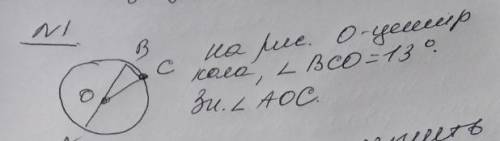 N1
B
C
O
на рис. О-центр
кола, ∠BCO=13°.
Зн. ∠AOC.